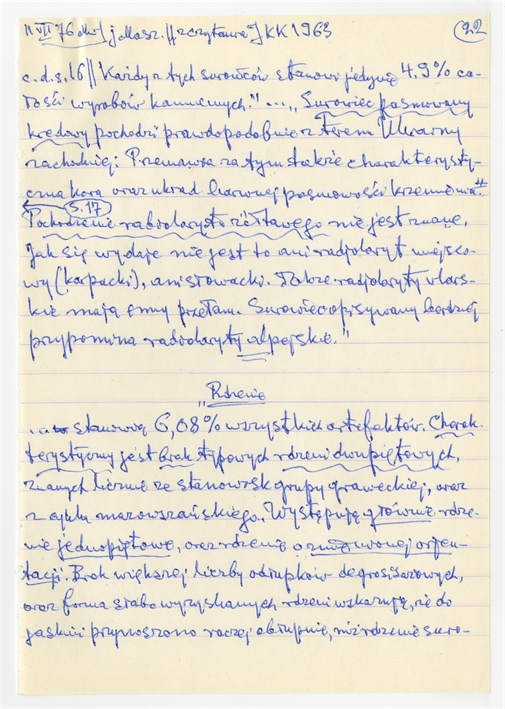 11 VII 76 [zczytania] KK 1963
22
c.d.s.16 || Każdy z tych surowców stanowi jedynie 4.9% ca-
łości wyrobów kamiennych." ..., "Surowiec pasmowany
kredowy pochodzi prawdopodobnie z terenu Ukrainy
zachodniej. Przemawia za tym także charakterysty-
czna kora oraz układ barwnej pasmowości krzemienia."
s.17
Pochodzenie radiolarytu żółtawego nie jest znane.
Jak się wydaje nie jest to ani radiolaryt miejsco-
wy (karpacki), ani słowacki. Także radiolaryty
skie mają inny przełam. Surowiec opisywany bardziej
przypomina radiolaryty alpejskie."
"Rdzenie
... stanowią 6,08% wszystkich artefaktów. Charak-
terystyczny jest brak typowych rdzeni dwupiętowych,
znanych licznie ze stanowisk grupy graweckiej, oraz
z cyklu mazowszańskiego. Występują głównie rdze-
nie jednopiętowe, oraz rdzenie o zmienionej orien-
tacji. Brak większej liczby odłupków
oraz forma słabo wyzyskanych rdzeni wskazuje, że do
jaskini przynoszono raczej obłupnie, niż rdzenie suro-